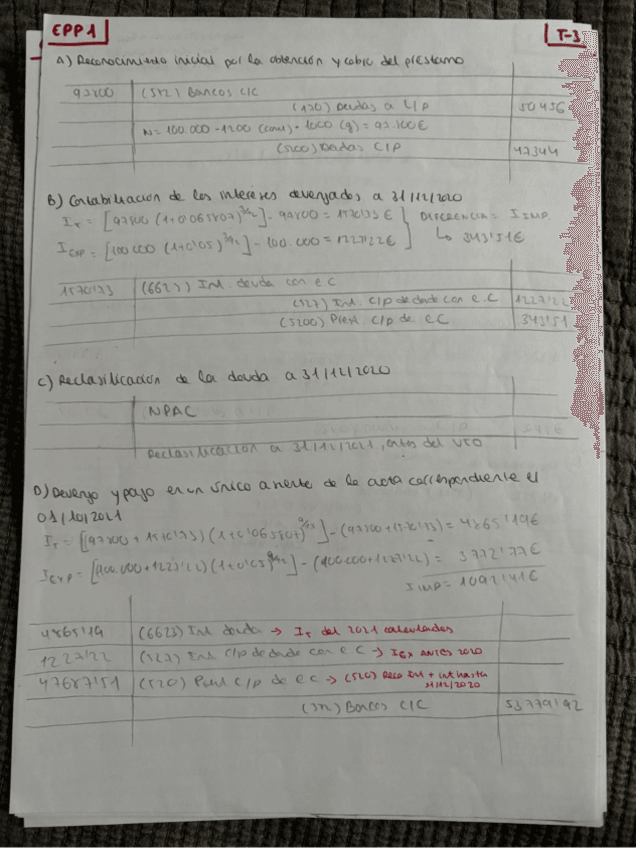 EPP1
T-3
A) Reconocimiento inicial por la obtención y cobro del préstamo
97800 (572) Bancos C/C
(170) Deudas a L/P 50456
N = 100.000 - 1200 (com) - 1000 (g) =
(5200) Deudas C/P 47344
B) Contabilización de los intereses devengados a 31/12/2020
IT = [97800 (1+0'065807)^3/12] - 97800 = 1570'73€ DIFERENCIA = I IMP.
IEXP = [100.000 (1+0'05)^3/12] - 100.000 = 1227'22€ ↳ 343'51€
1570'73 (6623) Int. deuda con e.C
(527) Int. C/P de deuda con e.C 1227'22
(5200) Prest. C/P de e.C 343'51
C) Reclasificación de la deuda a 31/12/2020
NPAC
Reclasificación a 31/12/2021, antes del VTO
D) Devengo y pago en un único asiento de la cuota correspondiente el
01/10/2021
IT = [(97800 + 1570'73) (1+0'065807)^9/12] - (97800+1570'73) = 4865'19€
IEXP = [(100.000+1227'22) (1+0'05)^9/12] - (100.000+1227'22) = 3772'77€
I IMP = 1092'41€
4865'19 (6623) Int. deuda → IT del 2021 calculados
1227'22 (527) Int. C/P de deuda con e C → IEX ANTES 2020
47687'51 (520) Prest C/P de e C → (520) Reco Ini + int hasta
31/12/2020
(572) Bancos C/C 53779'92